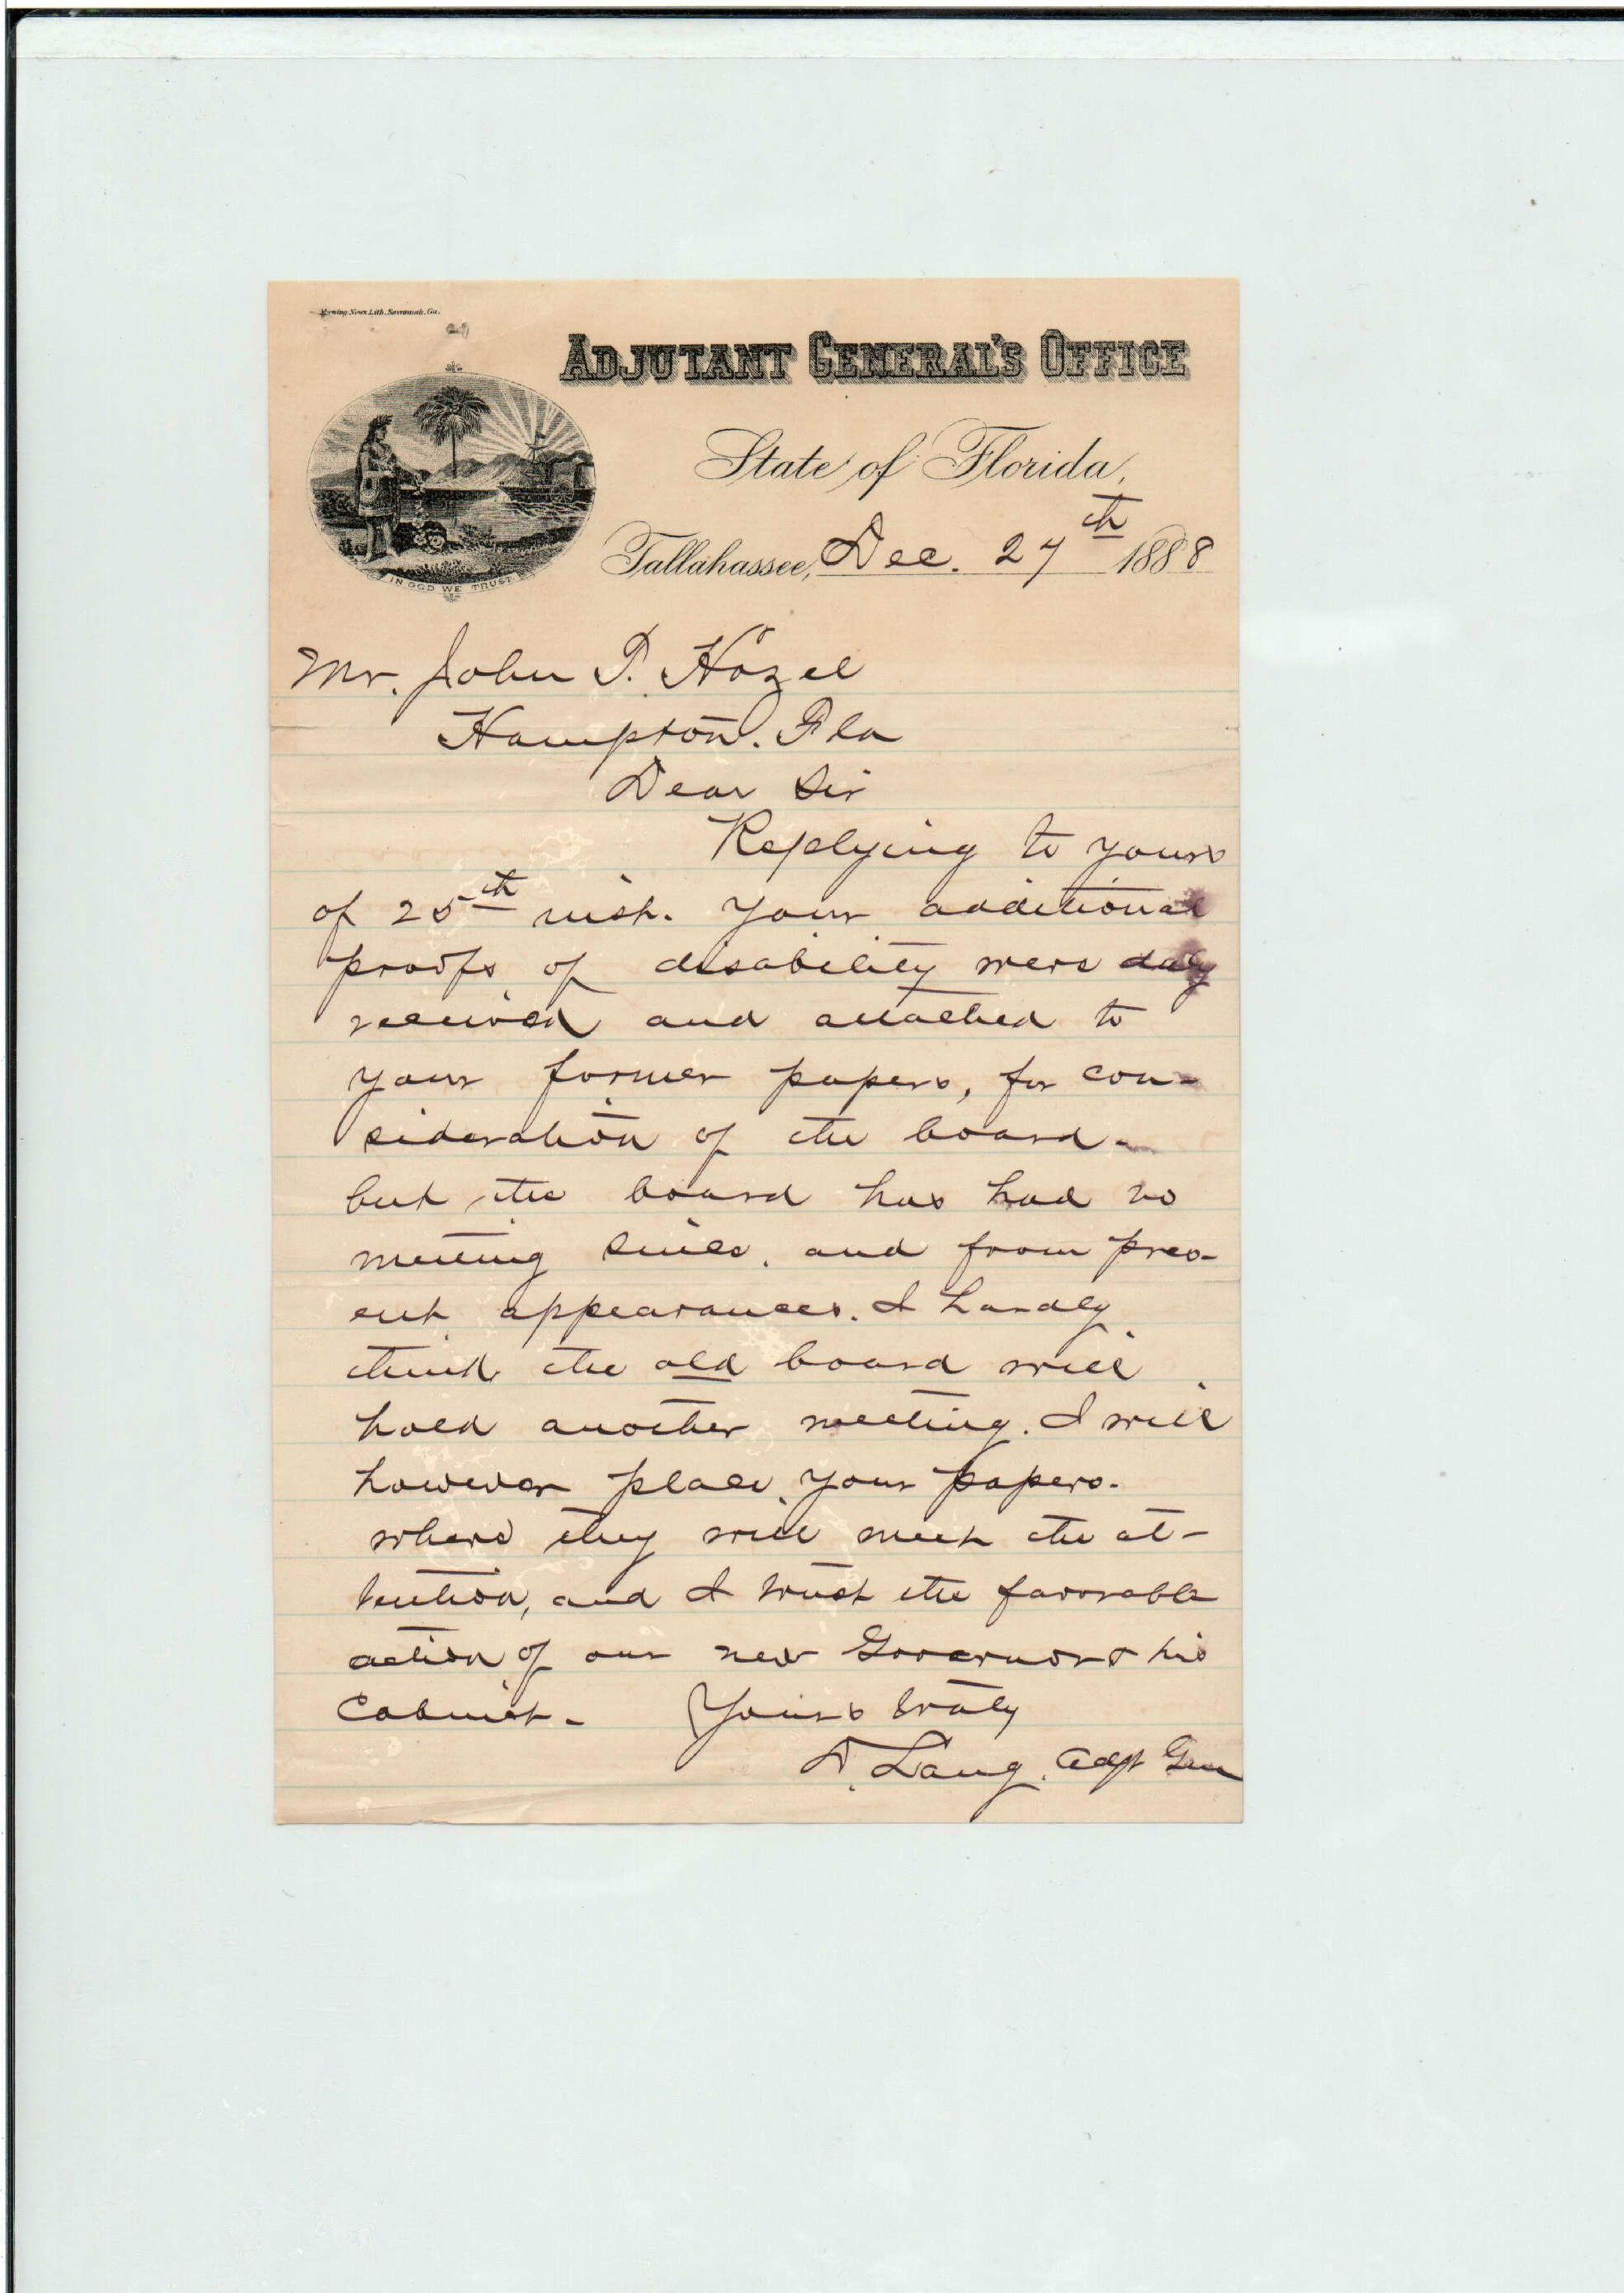 Morning News Lith. Savannah, Ga.
ADJUTANT GENERAL'S OFFICE
State of Florida,
IN GOD WE TRUST
Tallahassee, Dec. 27th 1888
Mr. John T. Hazel
Hampton. Fla
Dear Sir
Replying to yours
of 25th inst. Your additional
proofs of disability were duly
received and attached to
your former papers, for con-
sideration of the board-
but the board has had no
meeting since, and from pres-
ent appearances. I hardly
think the old board will
hold another meeting. I will
however place your papers.
where they will meet the at-
tention, and I trust the favorable
action of our new Governor & his
Cabinet- Yours truly
D. Lang. Adjt Gen